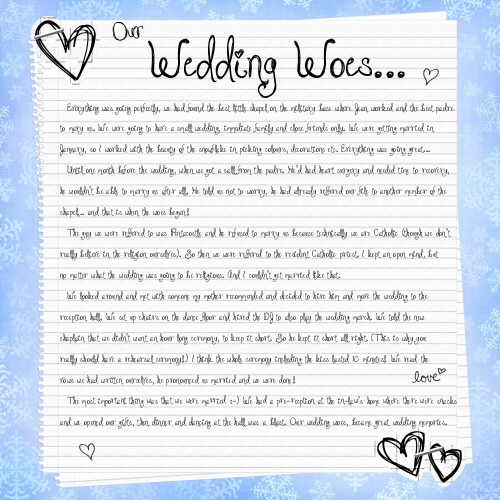 Our
Wedding Woes...
Everything was going perfectly, we had found the best little chapel on the military base where Jean worked and the best padre
to marry us. We were going to have a small wedding, immediate family and close friends only. We were getting married in
January, so I worked with the beauty of the snowflake in picking colours, decorations etc. Everything was going great...
Until one month before the wedding, when we got a call from the padre. He'd had heart surgery and needed time to recovery,
he wouldn't be able to marry us after all. He told us not to worry, he had already reffered our file to another member of the
chapel... and that is when the woes began!
The guy we were reffered to was Pentacostle and he refused to marry us because technically we are Catholic (though we don't
really believe in the religion ourselves). So then we were reffered to the resident Catholic priest. I kept an open mind, but
no matter what the wedding was going to be religious. And I couldn't get married like that.
We looked around and met with someone my mother recommended and decided to hire him and move the wedding to the
reception hall. We set up chairs on the dance floor and hired the DJ to also play the wedding march. We told the new
chaplain that we didn't want an hour long ceremony, to keep it short. So he kept it short all right. (This is why you
really should have a rehearsal ceremony!) I think the whole ceremony including the kiss lasted 10 minutes! We read the
vows we had written ourselves, he pronounced us married and we were done!
love
The most important thing was that we were married :-) We had a pre-reception at the in-law's home where there were snacks
and we opened our gifts, then dinner and dancing at the hall was a blast. Our wedding woes, became great wedding memories.